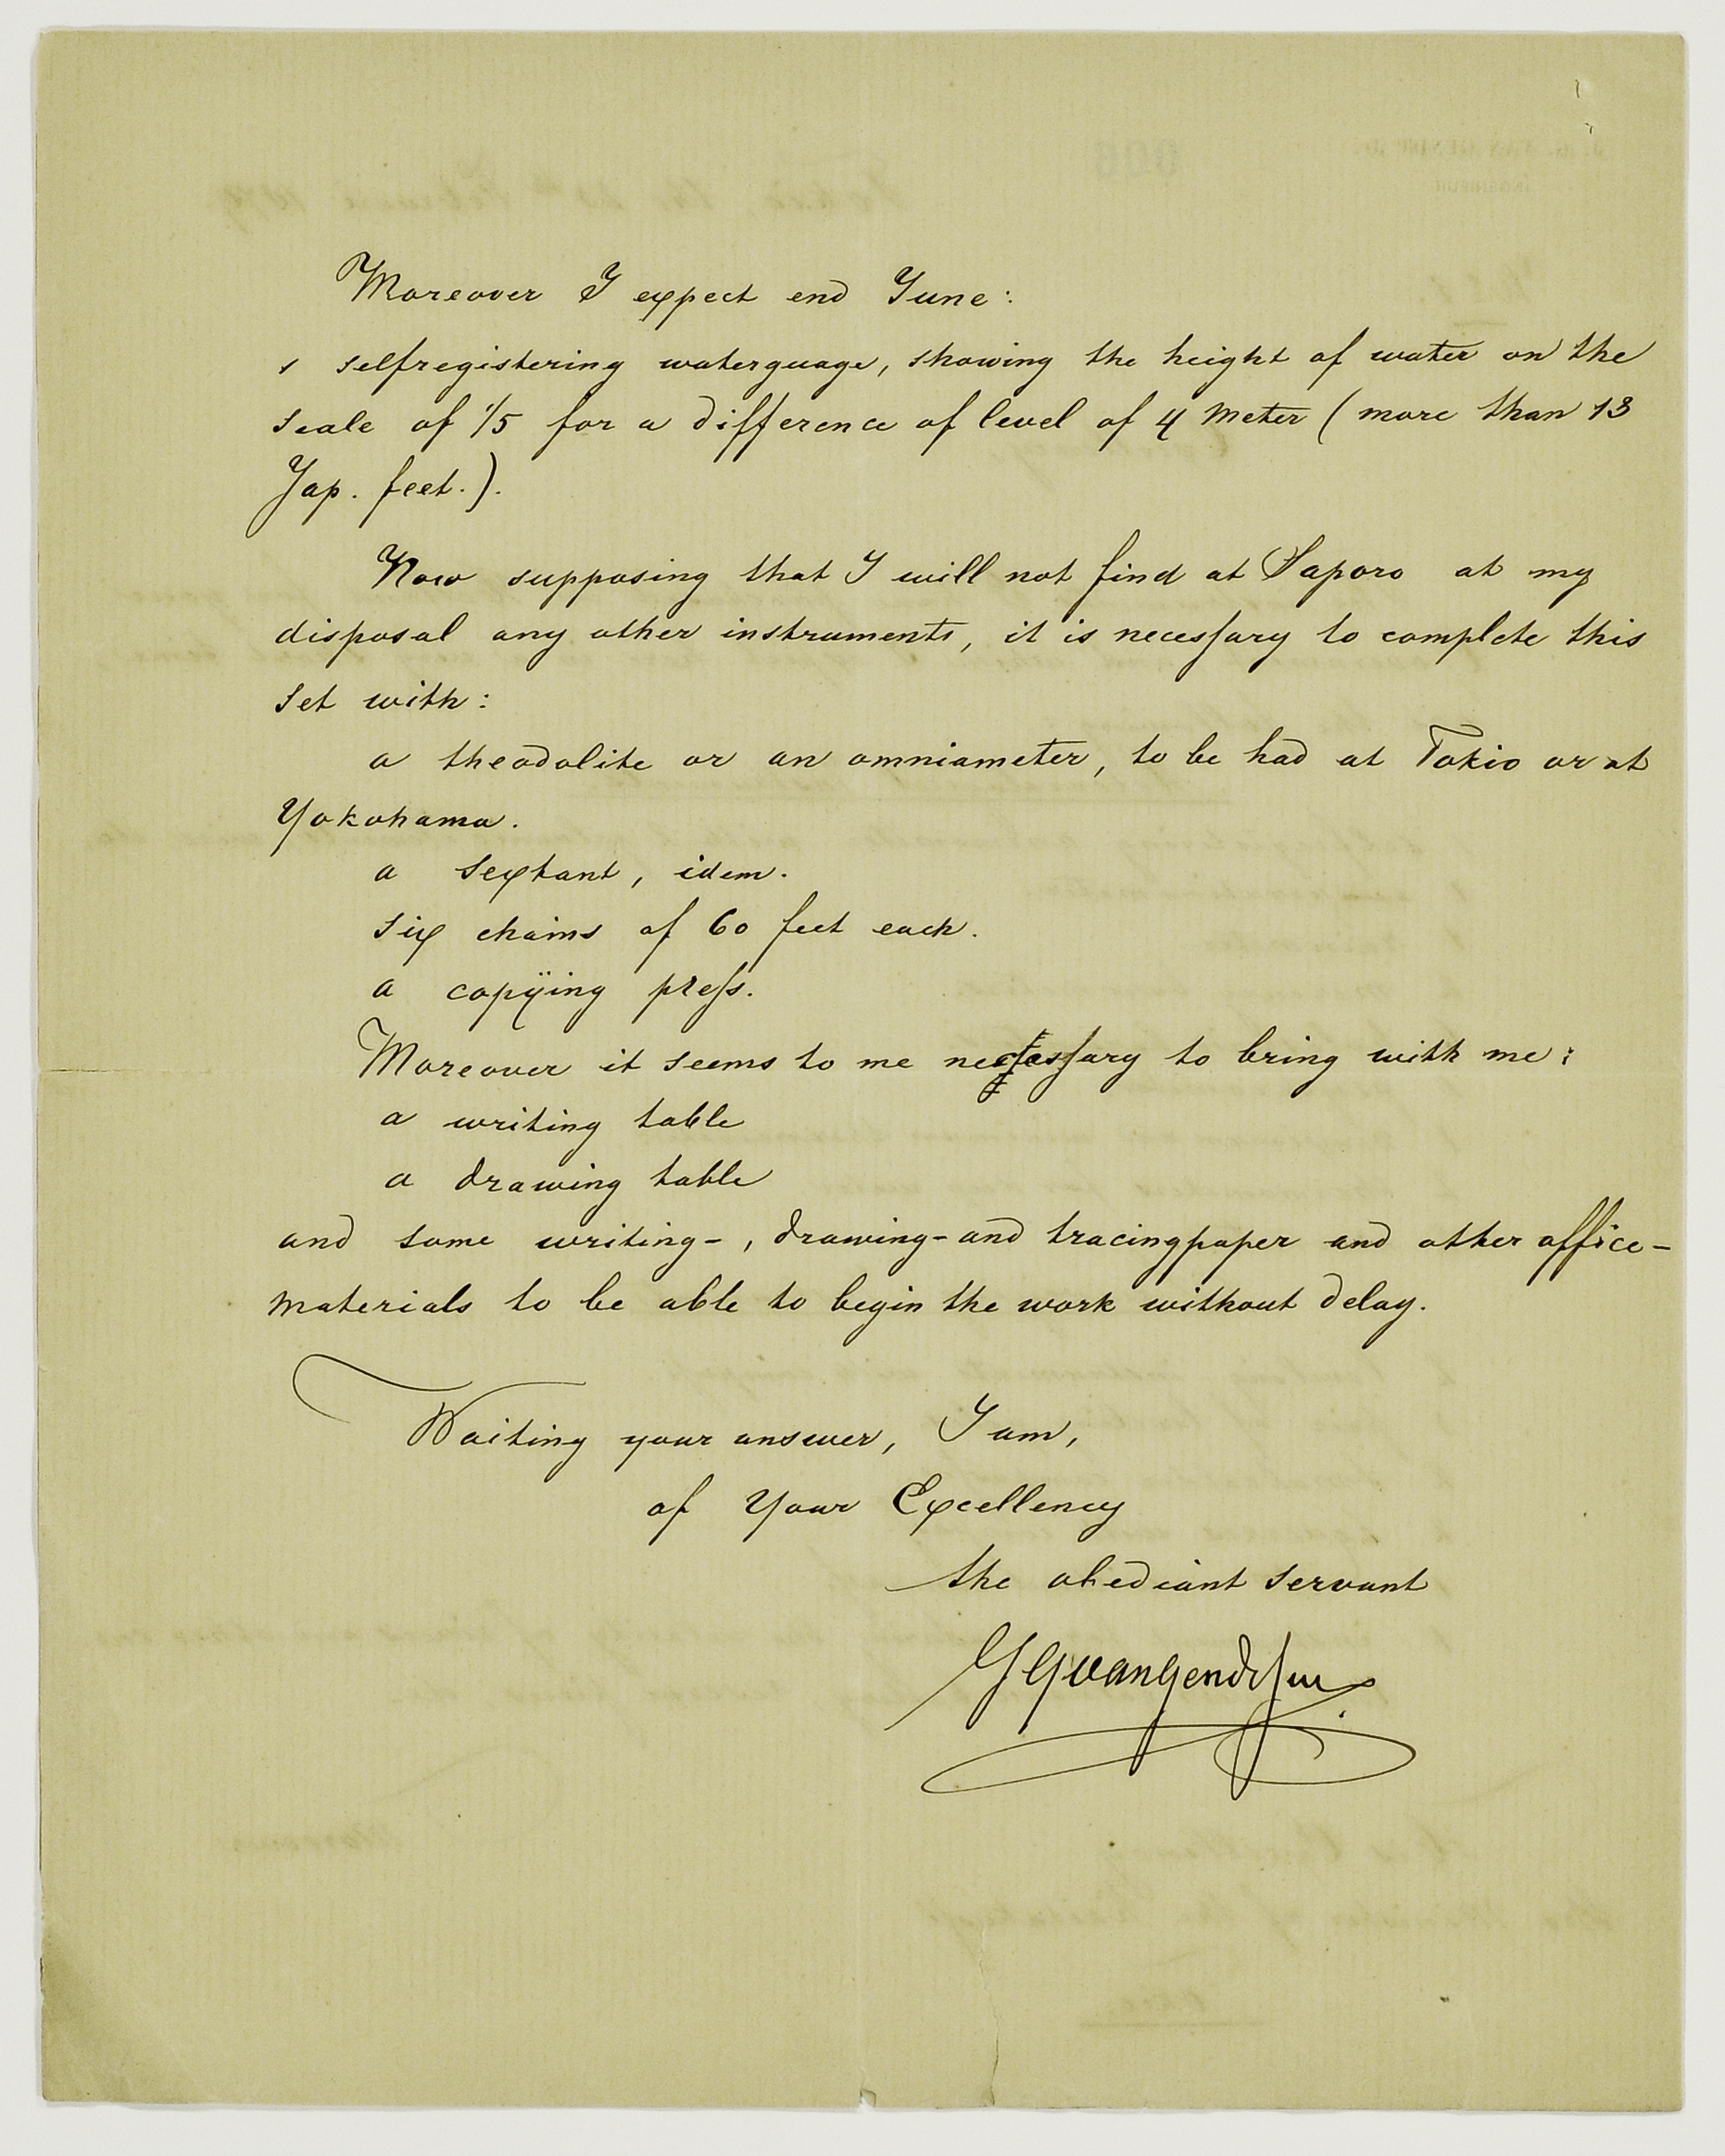 Moreover I expect end June:
1 selfregistering waterguage, showing the height of water on the
scale of 1/5 for a difference of level of 4 Meter (more than 13
Jap. feet.).
Now supposing that I will not find at Saporo at my
disposal any other instruments, it is necessary to complete this
set with:
a theodolite or an omniameter, to be had at Tokio or at
Yokohama.
a sextant, idem.
six chains of 60 feet each.
a copÿing press.
Moreover it seems to me necessary to bring with me:
a writing table
a drawing table
and some writing-, drawing- and tracingpaper and other office-
materials to be able to begin the work without delay.
Waiting your answer, I am,
of Your Excellency
the obediant servant
JGvanGendt jr.